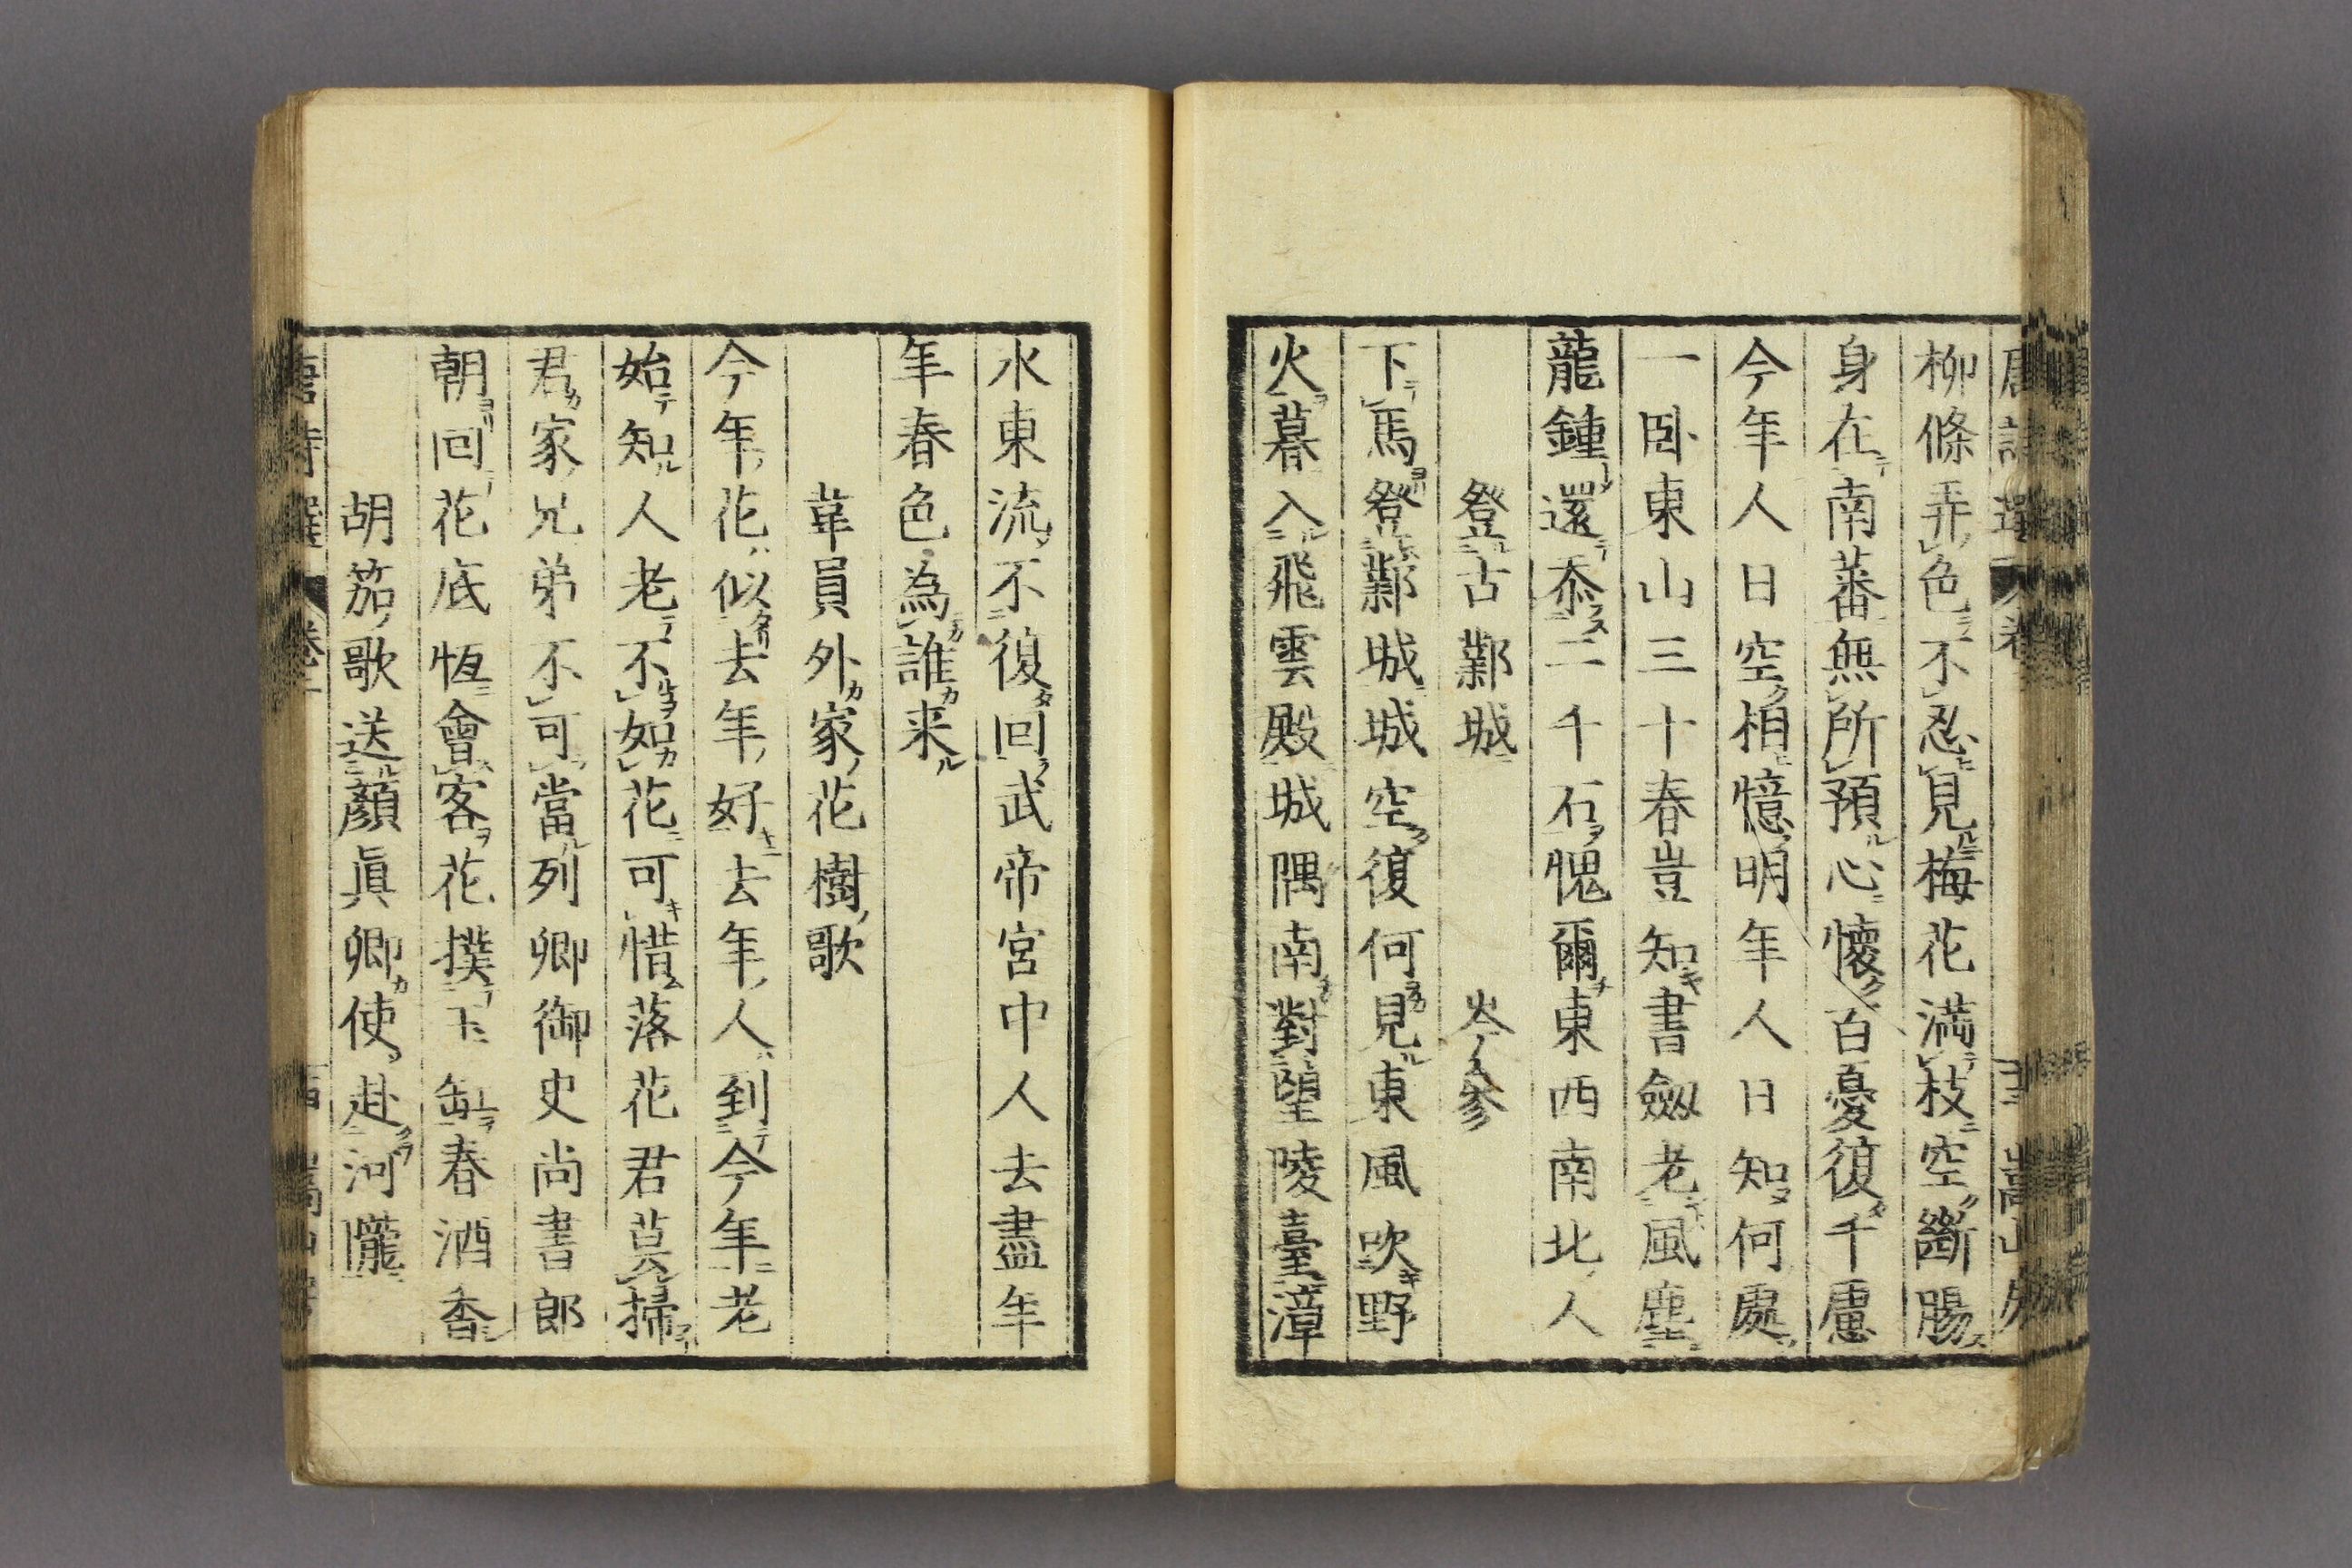 柳條弄色不忍見梅花満枝空斷腸
身在南蕃無所預心懷百憂復千慮
今年人日空相憶明年人日知何處
一臥東山三十春豈知書劔老風塵
龍鍾還忝二千石愧爾東西南北人
登古鄴城　岑參
下馬登鄴城城空復何見東風吹野
火暮入飛雲殿城隅南對望陵臺漳
水東流不復回武帝宮中人去盡年
年春色為誰来
韋員外家花樹歌
今年花似去年好去年人到今年老
始知人老不如花可惜落花君莫掃
君家兄弟不可當列卿御史尚書郎
朝回花底恆會客花撲玉缸春酒香
胡笳歌送顏眞卿使赴河隴
唐詩選 卷二